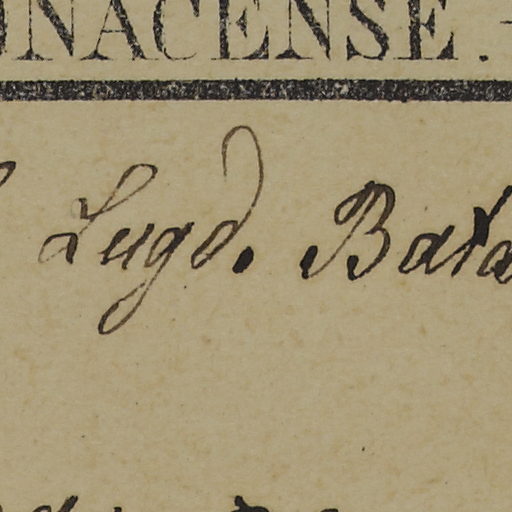 NACENSE.
Lugd. Bata